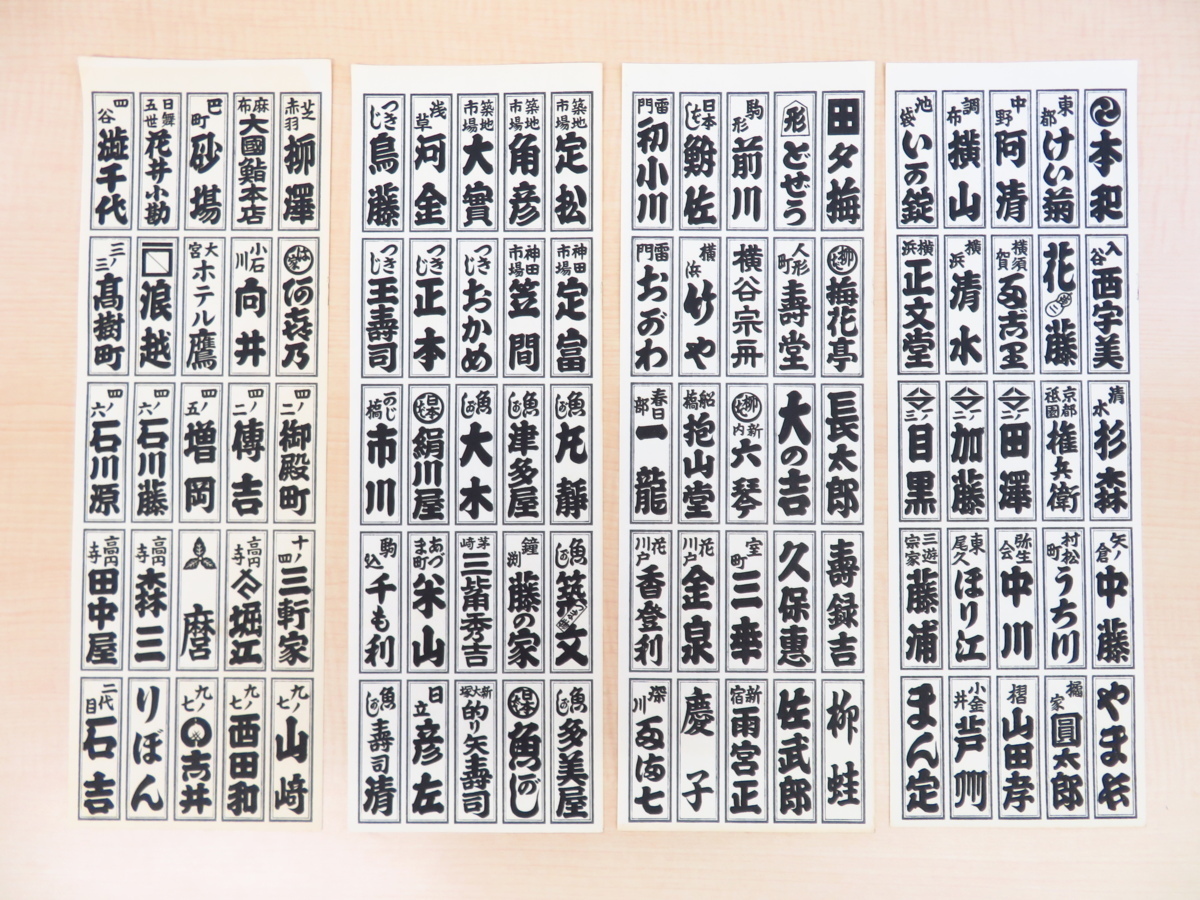 本和
東都 けい菊
中野 阿清
調布 横山
池袋 いの錠
入谷 西宇美
花藤
横須賀
横浜 清水
横浜 正文堂
清水 杉森
京都祇園 権兵衛
一ノ二 田澤
一ノ二 加藤
一ノ三 目黒
矢ノ倉 中藤
村松町 うちだ川
弥生会 中川
東尾久 ほり江
三遊宗家 藤浦
橘家 圓太郎
摺 山田孝
小金井 芦州
まん定
田 夕梅
形 どぜう
駒形 前川
日本ばし 鮒佐
雷門 初小川
柳ばし 梅花亭
人形町 壽堂
横谷宗与
横浜 竹や
雷門 おおわ
長太郎
大の吉
柳ばし 新内 六琴
船橋 抱山堂
春日部 一龍
壽録吉
久保惠
室町 三幸
花川戸 金泉
花川戸 香登利
柳蛙
佐武郎
新宿 雨宮正
慶子
深川
築地市場 定松
築地市場 角彦
築地市場 大實
浅草 河金
つきじ 鳥藤
神田市場 定富
神田市場 笠間
つきじ おかめ
つきじ 正本
つきじ 王壽司
魚がし 九静
魚がし 津多屋
魚がし 大木
日本ばし 絹川屋
のじ橋 市川
魚がし 築文
鐘渕 藤の家
茅崎 三觜秀吉
あづま町 米山
駒込 千も利
魚がし 多美屋
日本ばし 魚がし
新大塚 的り矢壽司
日立 彦左
魚がし 壽司清
芝赤羽 柳澤
麻布 大國鮨本店
巴町 砂場
日舞五世 花井小勘
四谷 澁千代
河㐂乃
小石川 向井
大宮 ホテル鷹
浪越
三ノ三 髙樹町
四ノ二 御殿町
四ノ二 傳吉
四ノ五 増岡
四ノ六 石川藤
四ノ六 石川源
十ノ四 三軒家
高円寺 堀江
麿
高円寺 森三
高円寺 田中屋
九ノ七 山﨑
九ノ七 西田和
九ノ七 吉井
りぼん
二代目 石吉